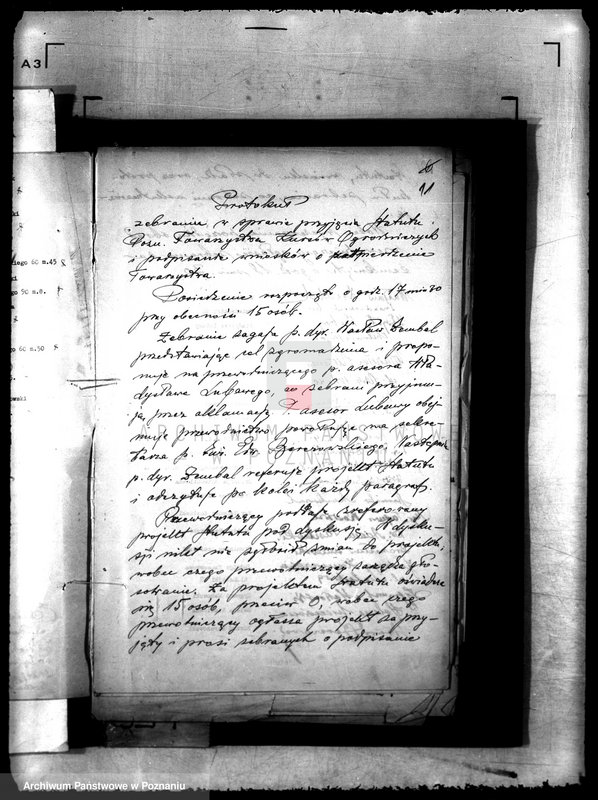 A3
11
Protokuł
zebrania w sprawie przyjęcia Statutu
Pozn. Towarzystwa Kursów Ogrodniczych
i podpisania wniosków o zatwierdzenie
Towarzystwa.
Posiedzenie rozpoczęto o godz. 17 min 30
przy obecności 15 osób.
Zebranie zagaja p. dyr. Wacław Dembal
przedstawiając cel zgromadzenia i propo-
nuje na przewodniczącego p. asesora Wła-
dysława Lubawego, co zebrani przyjmu-
ją przez aklamację. P. asesor Lubawy obej-
muje przewodnictwo powołuje na sekre-
tarza p. Inż. Edw. Berezowskiego. Następnie
p. dyr. Dembal referuje projekt Statutu
i odczytuje po kolei każdy paragraf.
Przewodniczący poddaje zreferowany
projekt Statutu pod dyskusję. W dysku-
sji nikt nie zgłosił zmian do projektu,
wobec czego przewodniczący zarządza gło-
sowanie. Za projektem Statutu oświadcza
się 15 osób, przeciw 0, wobec czego
przewodniczący ogłasza projekt za przy-
jęty i prosi zebranych o podpisanie
iego 60 m.45
go 90 m.8.
60 m.50
wski
ARCHIWUM PAŃSTWOWE
W POZNANIU
Archiwum Państwowe w Poznaniu